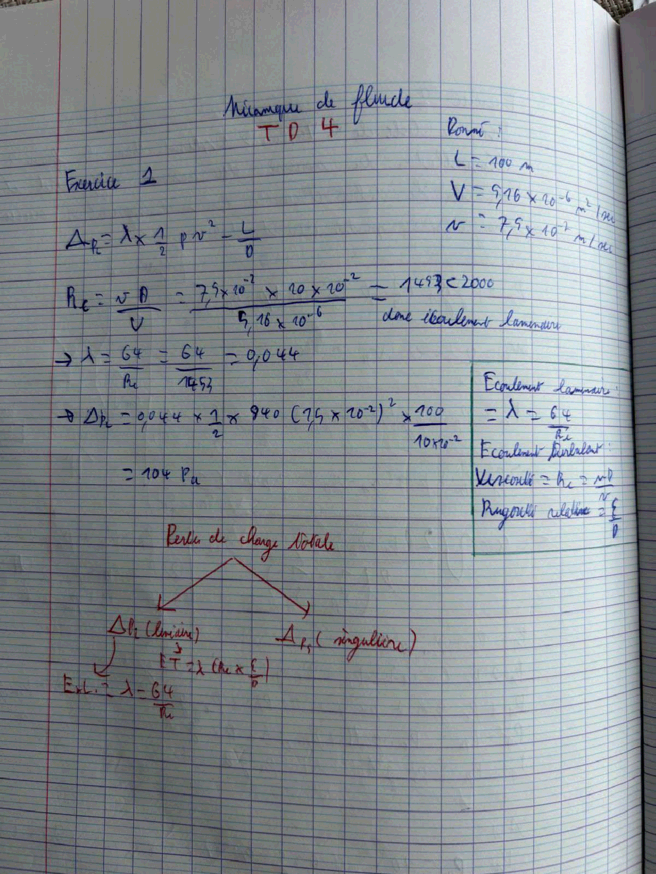 Mécanique de fluide
TD 4
Donné :
L = 100 m
V = 5,16 × 10⁻⁶ m²/sec
v = 7,5 × 10⁻² m/sec
Exercice 1
ΔPL = λ × 1/2 ρ v² - L/D
Re = v D / V = 7,5×10⁻² × 10 × 10⁻² / 5,16 × 10⁻⁶ = 1453 < 2000
donc écoulement laminaire
→ λ = 64/Re = 64/1453 = 0,044
→ ΔPL = 0,044 × 1/2 × 840 (7,5 × 10⁻²)² × 100 / 10×10⁻²
= 104 Pa
Ecoulement laminaire :
= λ = 64/Re
Ecoulement turbulent :
Viscosité = Re = vD/V
Rugosité relative = ξ/D
Perte de charge totale
ΔPL (linéaire)
ΔPs (singulière)
ET = λ (Re × ξ/D)
E.L. = λ - 64/Re